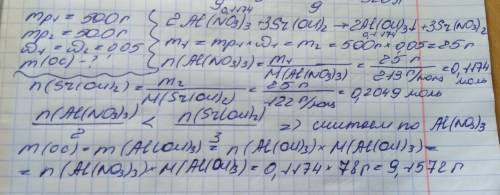 9 9
0,1174
mp₁ = 500г
2Al(NO₃)₃ + 3Sr(OH)₂ → 2Al(OH)₃↓ + 3Sr(NO₃)₂
0,1174
mp₂ = 500г
m₁ = mp₁ × ω₁ = m₂ = 500г × 0,05 = 25г
ω₁ = ω₂ = 0,05
m(OC) - ?
n(Al(NO₃)₃) = m₁ / M(Al(NO₃)₃) = 25г / 213г/моль = 0,1174 моль
n(Sr(OH)₂) = m₂ / M(Sr(OH)₂) = 25г / 122г/моль = 0,2049 моль
n(Al(NO₃)₃) / 2 < n(Sr(OH)₂) / 3 => считаем по Al(NO₃)₃
m(OC) = m(Al(OH)₃) = n(Al(OH)₃) × M(Al(OH)₃) =
= n(Al(NO₃)₃) × M(Al(OH)₃) = 0,1174 × 78г = 9,1572г